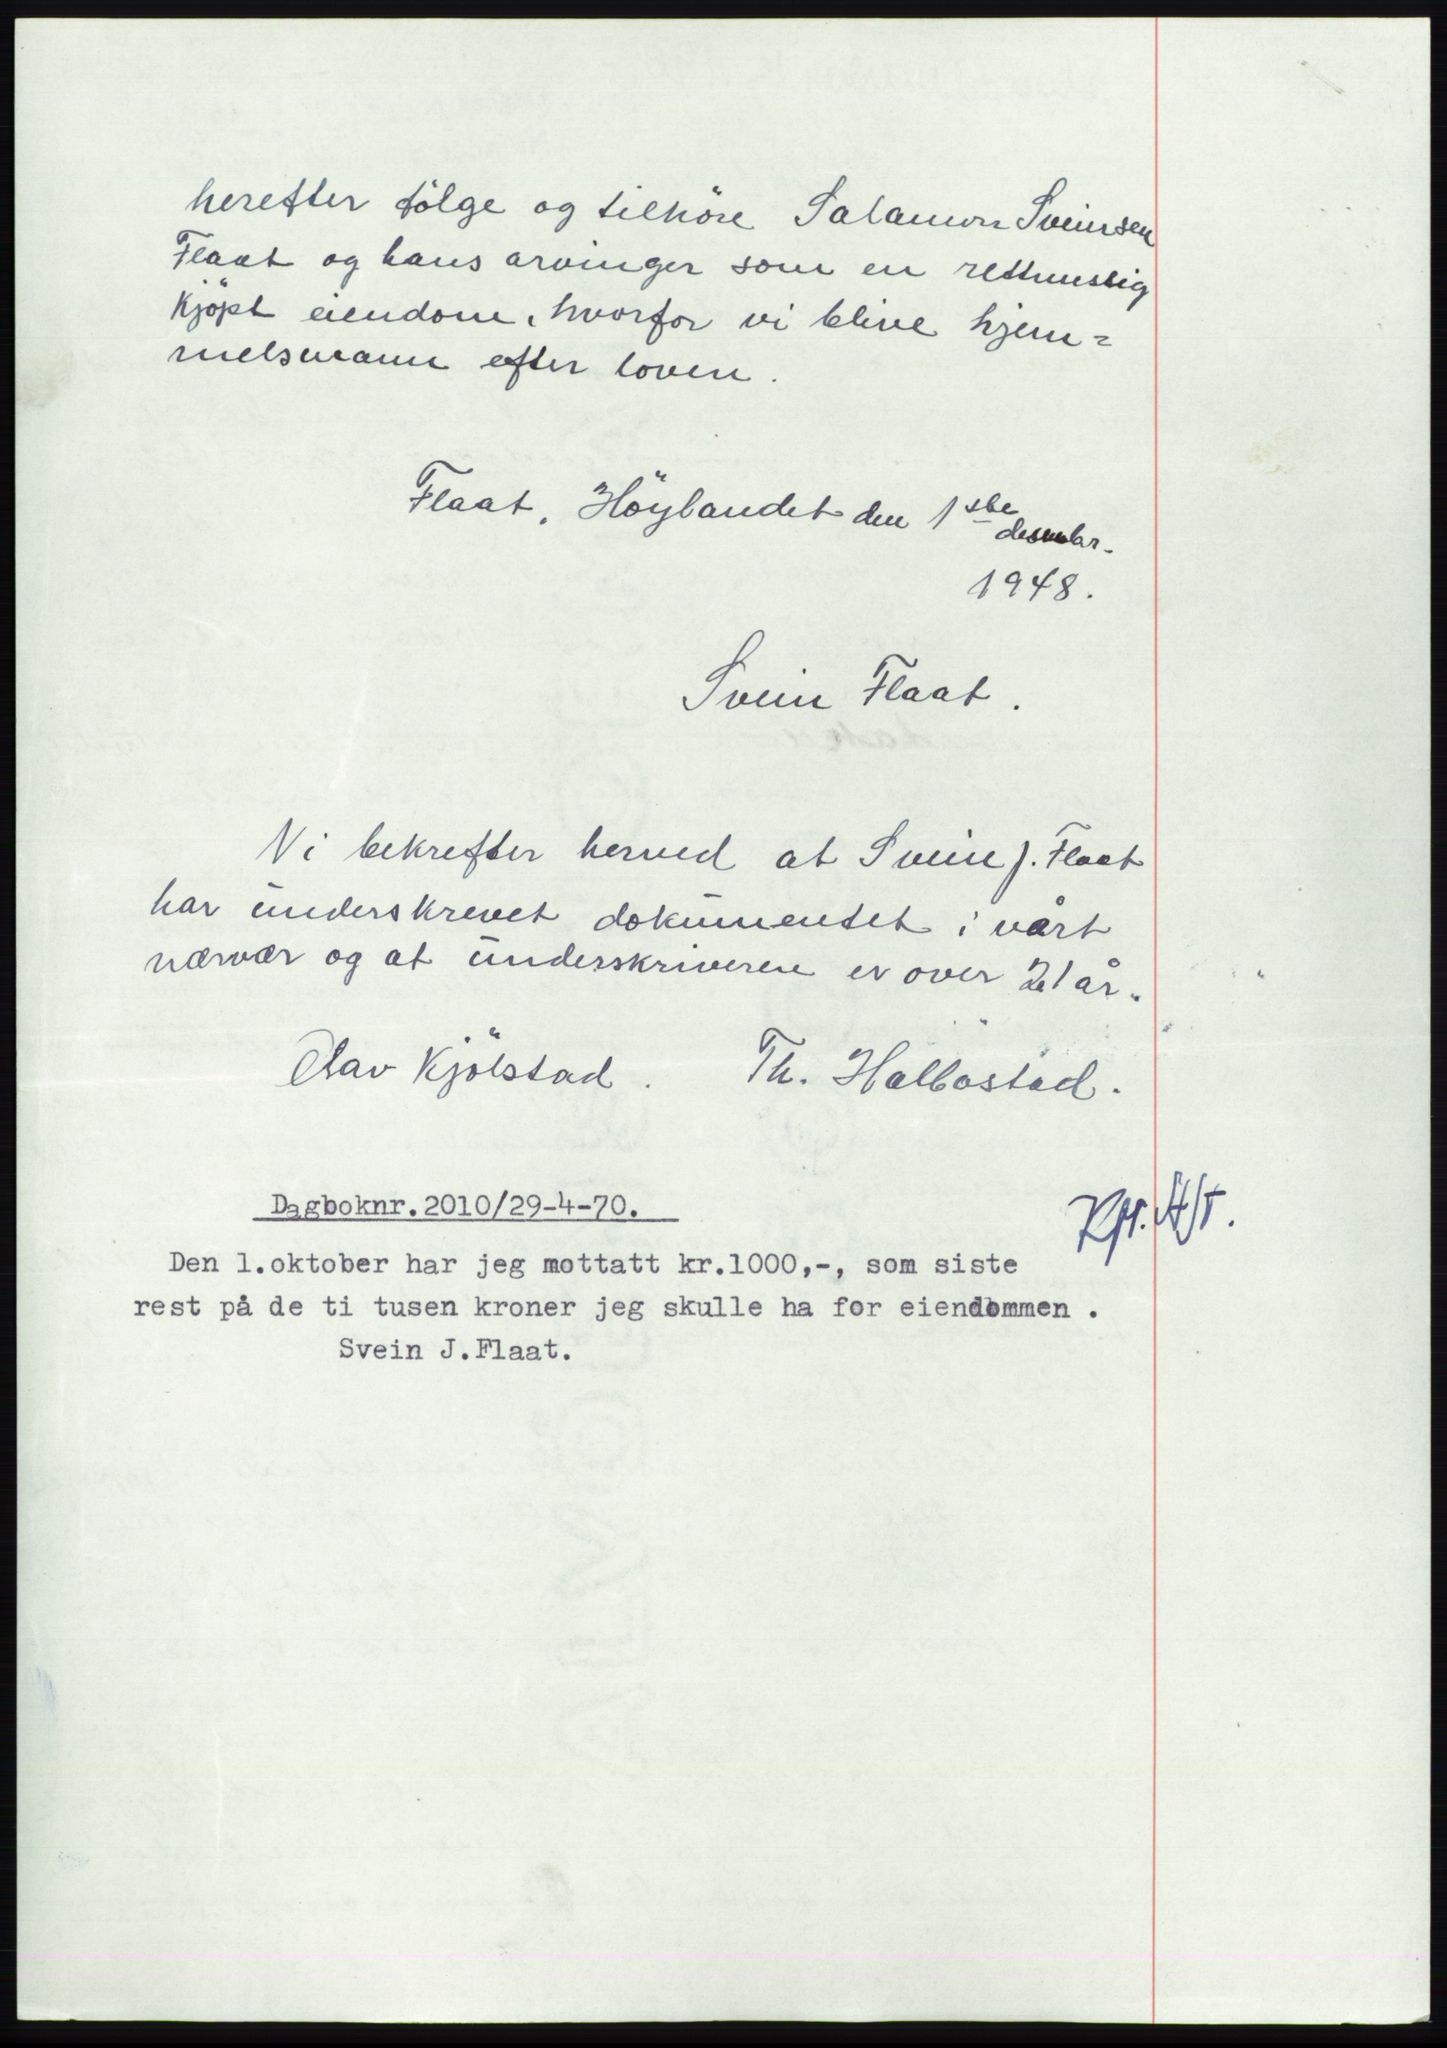 herefter følge og tilhöre Salamon Sveinsen
Flaat og hans arvinger som en rettmessig
kjöpt eiendom, hvorfor vi blive hjem=
melsmann efter loven.
Flaat, Höylandet den 1ste
desember.
1948.
Svein Flaat.
Vi bekrefter herved at Svein J. Flaat
har underskrevet dokumentet i vårt
nærvær og at underskriveren er over 21 år.
Olav Kjölstad. Th. Halbostad.
Dagboknr.2010/29-4-70.
Den 1.oktober har jeg mottatt kr.1000,-, som siste
rest på de ti tusen kroner jeg skulle ha for eiendommen .
Svein J.Flaat.